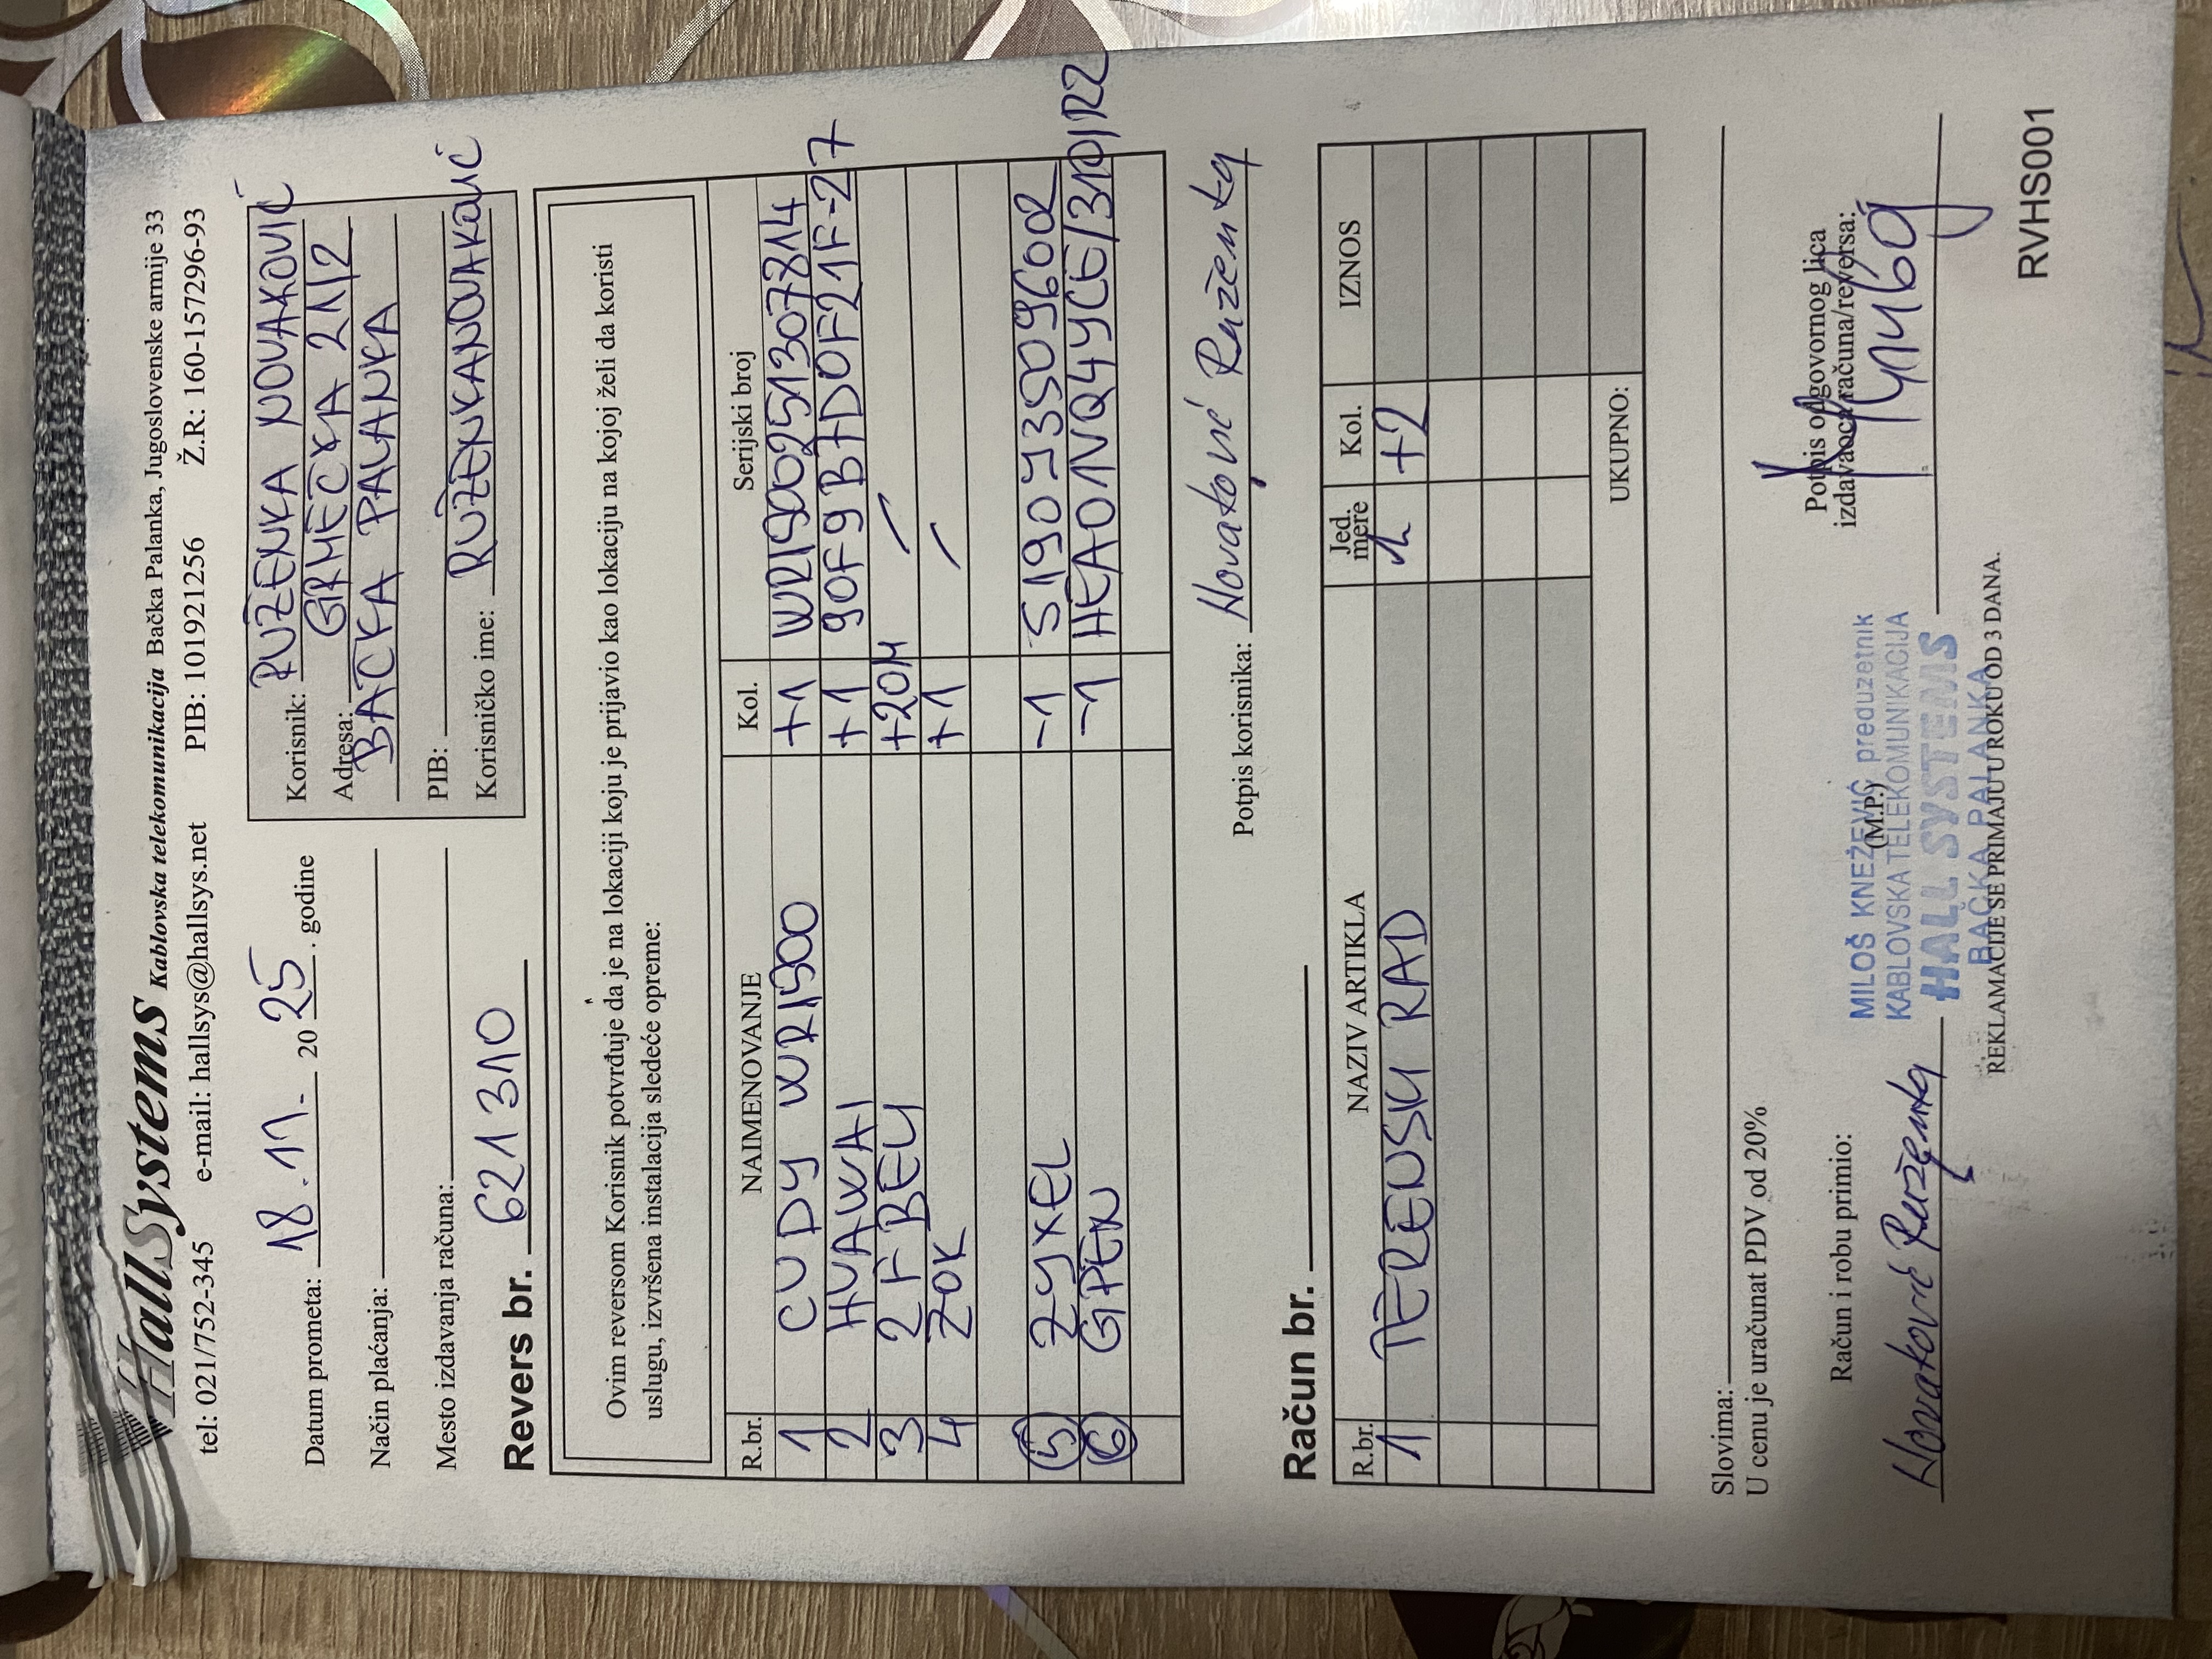 HallSystems Kablovska telekomunikacija Bačka Palanka, Jugoslovenske armije 33
tel: 021/752-345 e-mail: hallsys@hallsys.net PIB: 101921256 Ž.R: 160-157296-93
Datum prometa: 18.11. 2025. godine
Način plaćanja:
Mesto izdavanja računa:
Korisnik: RUŽENKA NOVAKOVIĆ
Adresa: GRMEČKA 21/2
BAČKA PALANKA
PIB:
Korisničko ime: RUŽENKANOVAKOVIĆ
Revers br. 621310
Ovim reversom Korisnik potvrđuje da je na lokaciji koju je prijavio kao lokaciju na kojoj želi da koristi
uslugu, izvršena instalacija sledeće opreme:
R.br. NAIMENOVANJE Kol. Serijski broj
1 CUDY WR1300 +1
2 HUAWAI +1 90F9B7D0F21F-27
3 2F BELI +20M /
4 ZOK +1 /
5 ZYXEL -1 S190Y35095602
6 GPEN -1
Potpis korisnika: Novaković Ruženka
Račun br.
R.br. NAZIV ARTIKLA Jed. mere Kol. IZNOS
1 TERENSKI RAD h +2
UKUPNO:
Slovima:
U cenu je uračunat PDV od 20%
Račun i robu primio:
Novaković Ruženka
(M.P.)
MILOŠ KNEŽEVIĆ preduzetnik
KABLOVSKA TELEKOMUNIKACIJA
HALL SYSTEMS
BAČKA PALANKA
Potpis odgovornog lica
izdavaoca računa/reversa:
REKLAMACIJE SE PRIMAJU U ROKU OD 3 DANA.
RVHS001